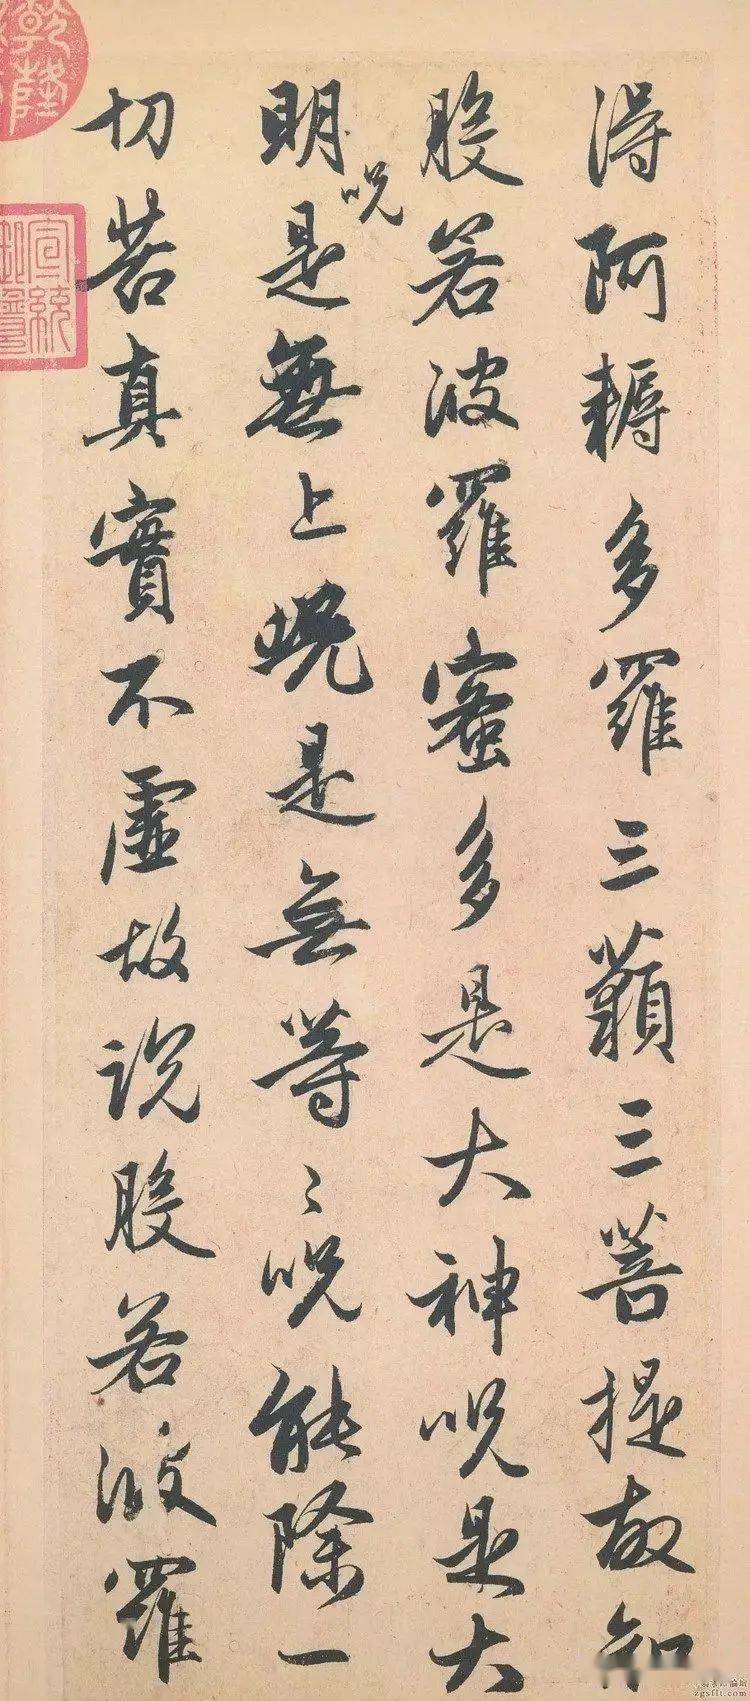 得阿耨多羅三藐三菩提故知
般若波羅蜜多是大神呪是大
明呪是無上呪是無等〻呪能除一
切苦真實不虛故說般若波羅
乾隆
宣統
zgsflt.com